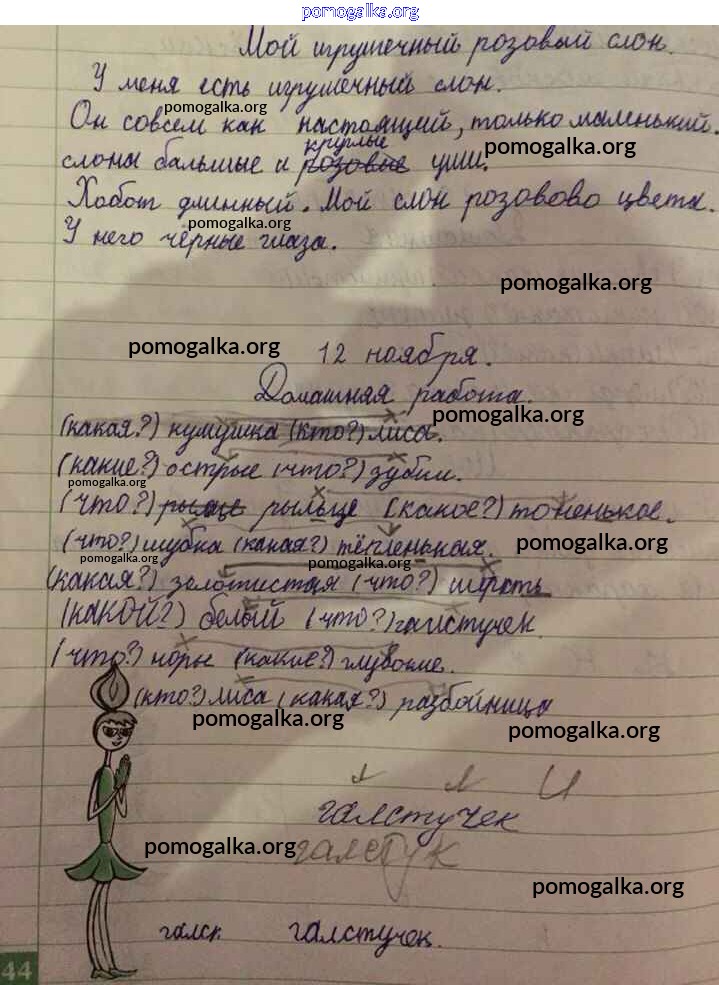 pomogalka.org
Мой игрушечный розовый слон.
У меня есть игрушечный слон.
pomogalka.org
Он совсем как настоящий, только маленький. У
круглые
слона бальшие и розовые уши.
pomogalka.org
Хобот длинный. Мой слон розовово цвета.
pomogalka.org
У него чёрные глаза.
pomogalka.org
pomogalka.org
12 ноября.
Домашняя работа.
pomogalka.org
(какая?) кумушка (кто?) лиса.
(какие?) острые (что?) зубки.
pomogalka.org
(что?) рыльце (какое?) тоненькое.
(что?) шубка (какая?) тёпленькая.
pomogalka.org
pomogalka.org
(какая?) золотистая (что?) шерсть
(КАКОЙ?) белый (что?) галстучек
(что?) норы (какие?) глубокие.
(кто?) лиса (какая?) разбойница
pomogalka.org
pomogalka.org
галстучек
pomogalka.org
галстук
pomogalka.org
галск галстучек.
44